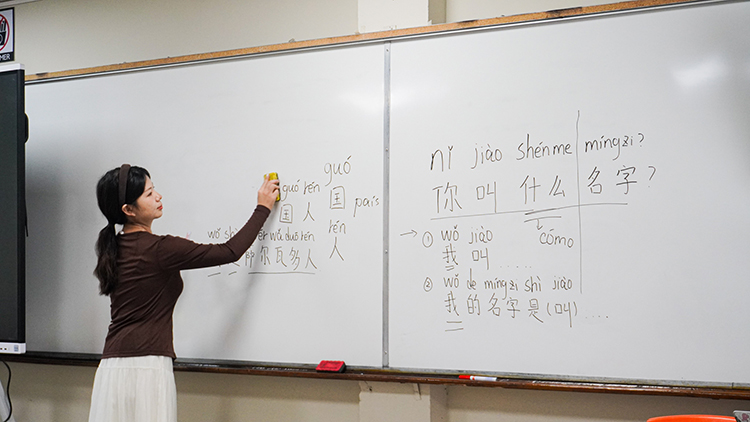 guó
guó rén
国人 国 país
rén
wǒ wǎ duō rén
尔瓦多人 人
nǐ jiào shénme míngzi?
你叫什么名字?
→ ① wǒ jiào
cómo
我叫.....
② wǒ de míngzi shì jiào
我的名字是(叫)....